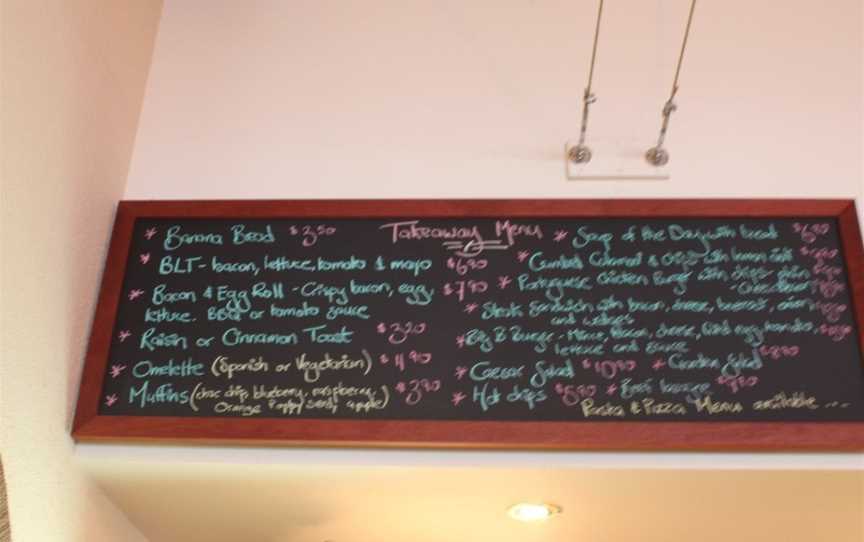 Takeaway Menu
* Banana Bread $3.50
* BLT - bacon, lettuce, tomato & mayo $6.80
* Bacon & Egg Roll - Crispy bacon, egg, $7.90
lettuce. BBQ or tomato sauce
* Raisin or Cinnamon Toast $3.20
* Omelette (Spanish or Vegetarian) $11.90
* Muffins (choc chip, blueberry, raspberry, $3.90
* Orange Poppy seed, apple)
* Soup of the Day with bread $6.80
* Crumbed Calamari & Chips with lemon
* Portuguese Chicken Burger with chips - plain
* Steak Sandwich with bacon, cheese, beetroot, onion
and wedges
* Big B Burger - Mince, bacon, cheese, fried egg, tomato,
lettuce and sauce
* Caesar Salad $10.80 * Garden Salad $8.80
* Hot chips $5.80 * Beef
Pasta & Pizza Menu available ...